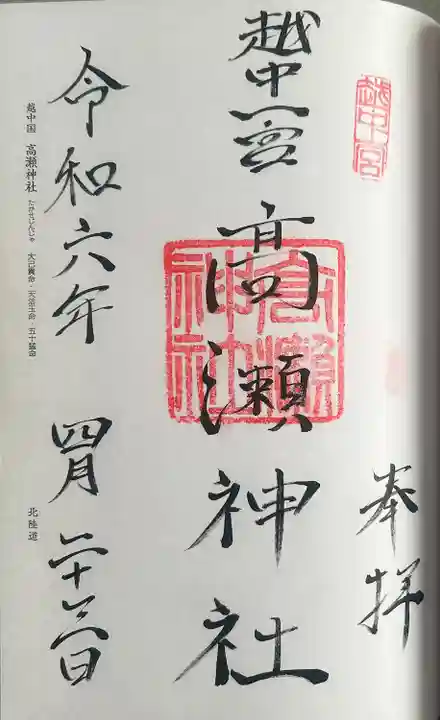 越中宮
奉拝
越中一宮 高瀬神社
高瀬神社
令和六年 四月二十三日
越中国 高瀬神社 たかせじんじゃ 大己貴命・天活玉命・五十猛命
北陸道